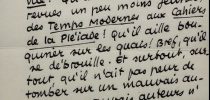 revues un peu moins jeunes
des Temps Modernes aux Cahiers
de la Pléiade! Qu'il aille bou-
quiner sur les quais! Bref, qu'il
se débrouille. Et surtout, sur-
tout, qu'il n'ait pas peur de
tomber sur un mauvais au-
mauvais auteurs n'